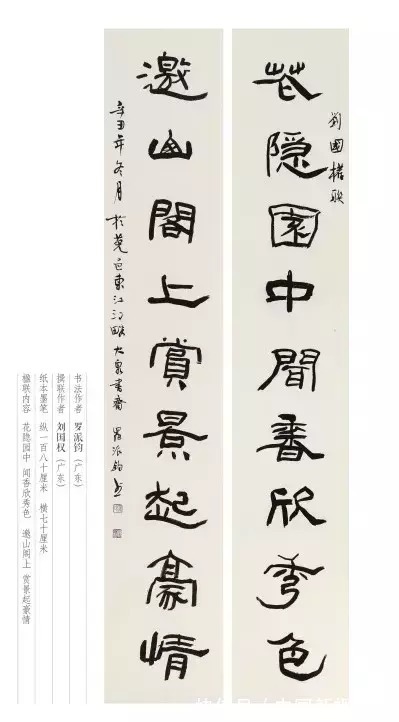 劉國權联
花隱園中聞香欣秀色
邀山閣上賞景起豪情
辛丑年冬月於莞邑東江河畔大泉書齋羅派鈞書
书法作者 罗派钧（广东）
撰联作者 刘国权（广东）
纸本墨笔 纵一百八十厘米 横七十厘米
楹联内容 花隐园中 闻香欣秀色 邀山阁上 赏景起豪情